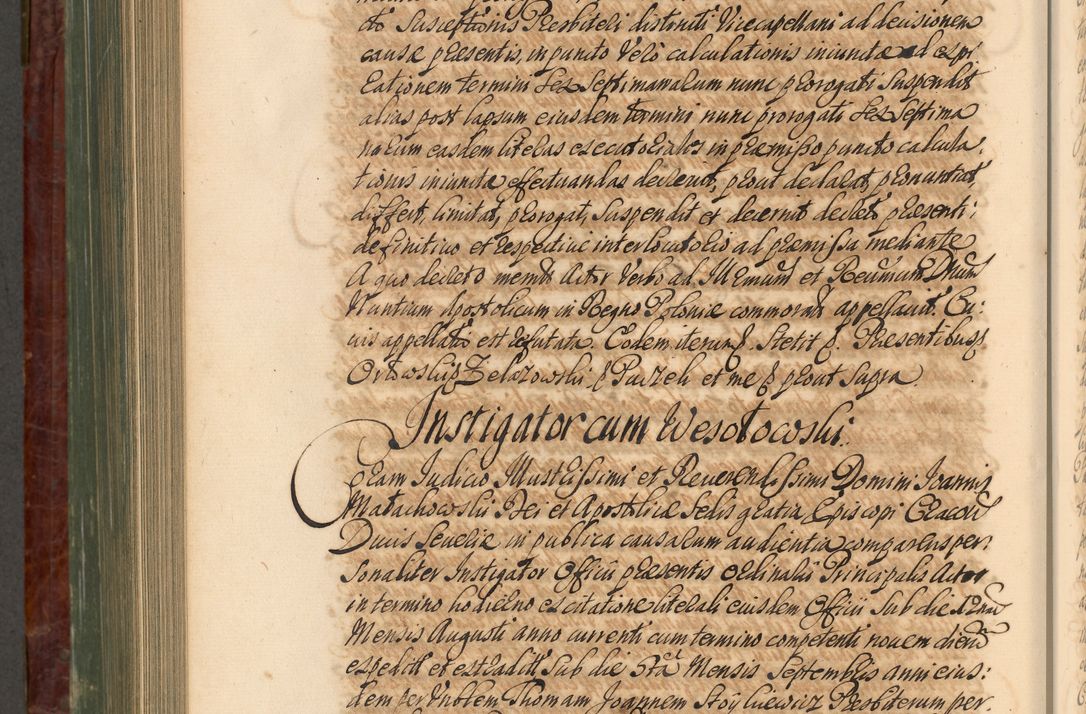 to Susceptionis Presbiteri distincti Vicecapellani ad decisionem
causæ præsentis, in puncto Verò calculationis iniunctæ ad expi
rationem termini sex Septimanarum nunc prorogati Suspendit
alias post lapsum eiusdem termini nunc prorogati sex Septima
narum easdem literas executoriales in præmisso puncto calcula,
tionis iniunctæ effectuandas decrevit, prout declarat, pronuntiat,
differt, limitat, prorogat, Suspendit et decernit decreto præsenti
definitivo et respective interlocutorio ad præmissa mediante
A quo decreto memt Actor Verbo ad Illmum et Reumum Dnum
Nuntium Apostolicum in Regno Poloniæ commorans appellavit. Cu:
ius appellatio est refutata. Eodem iterum p. Stetit p. Præsentibus
Orłowski Zelazowski Parzeli et me prout supra
Instigator cum Wesołowski.
Coram Judicio Illustrissimi et Reverendissimi Domini Joannis
Małachowski Dei et Apostolicæ Sedis gratia Episcopi Cracov
Ducis Severiæ in publica causarum audientia comparens per:
sonaliter Instigator Officii præsentis ordinarii Principalis Actor
in termino hodierno ex citatione literali eiusdem Officii Sub die 12ma
Mensis Augusti anno currenti cum termino competenti novem dierum
expedit et extradit Sub die 5ta Mensis Septembris anni eius:
dem per Thomam Joannem Presbiterum per